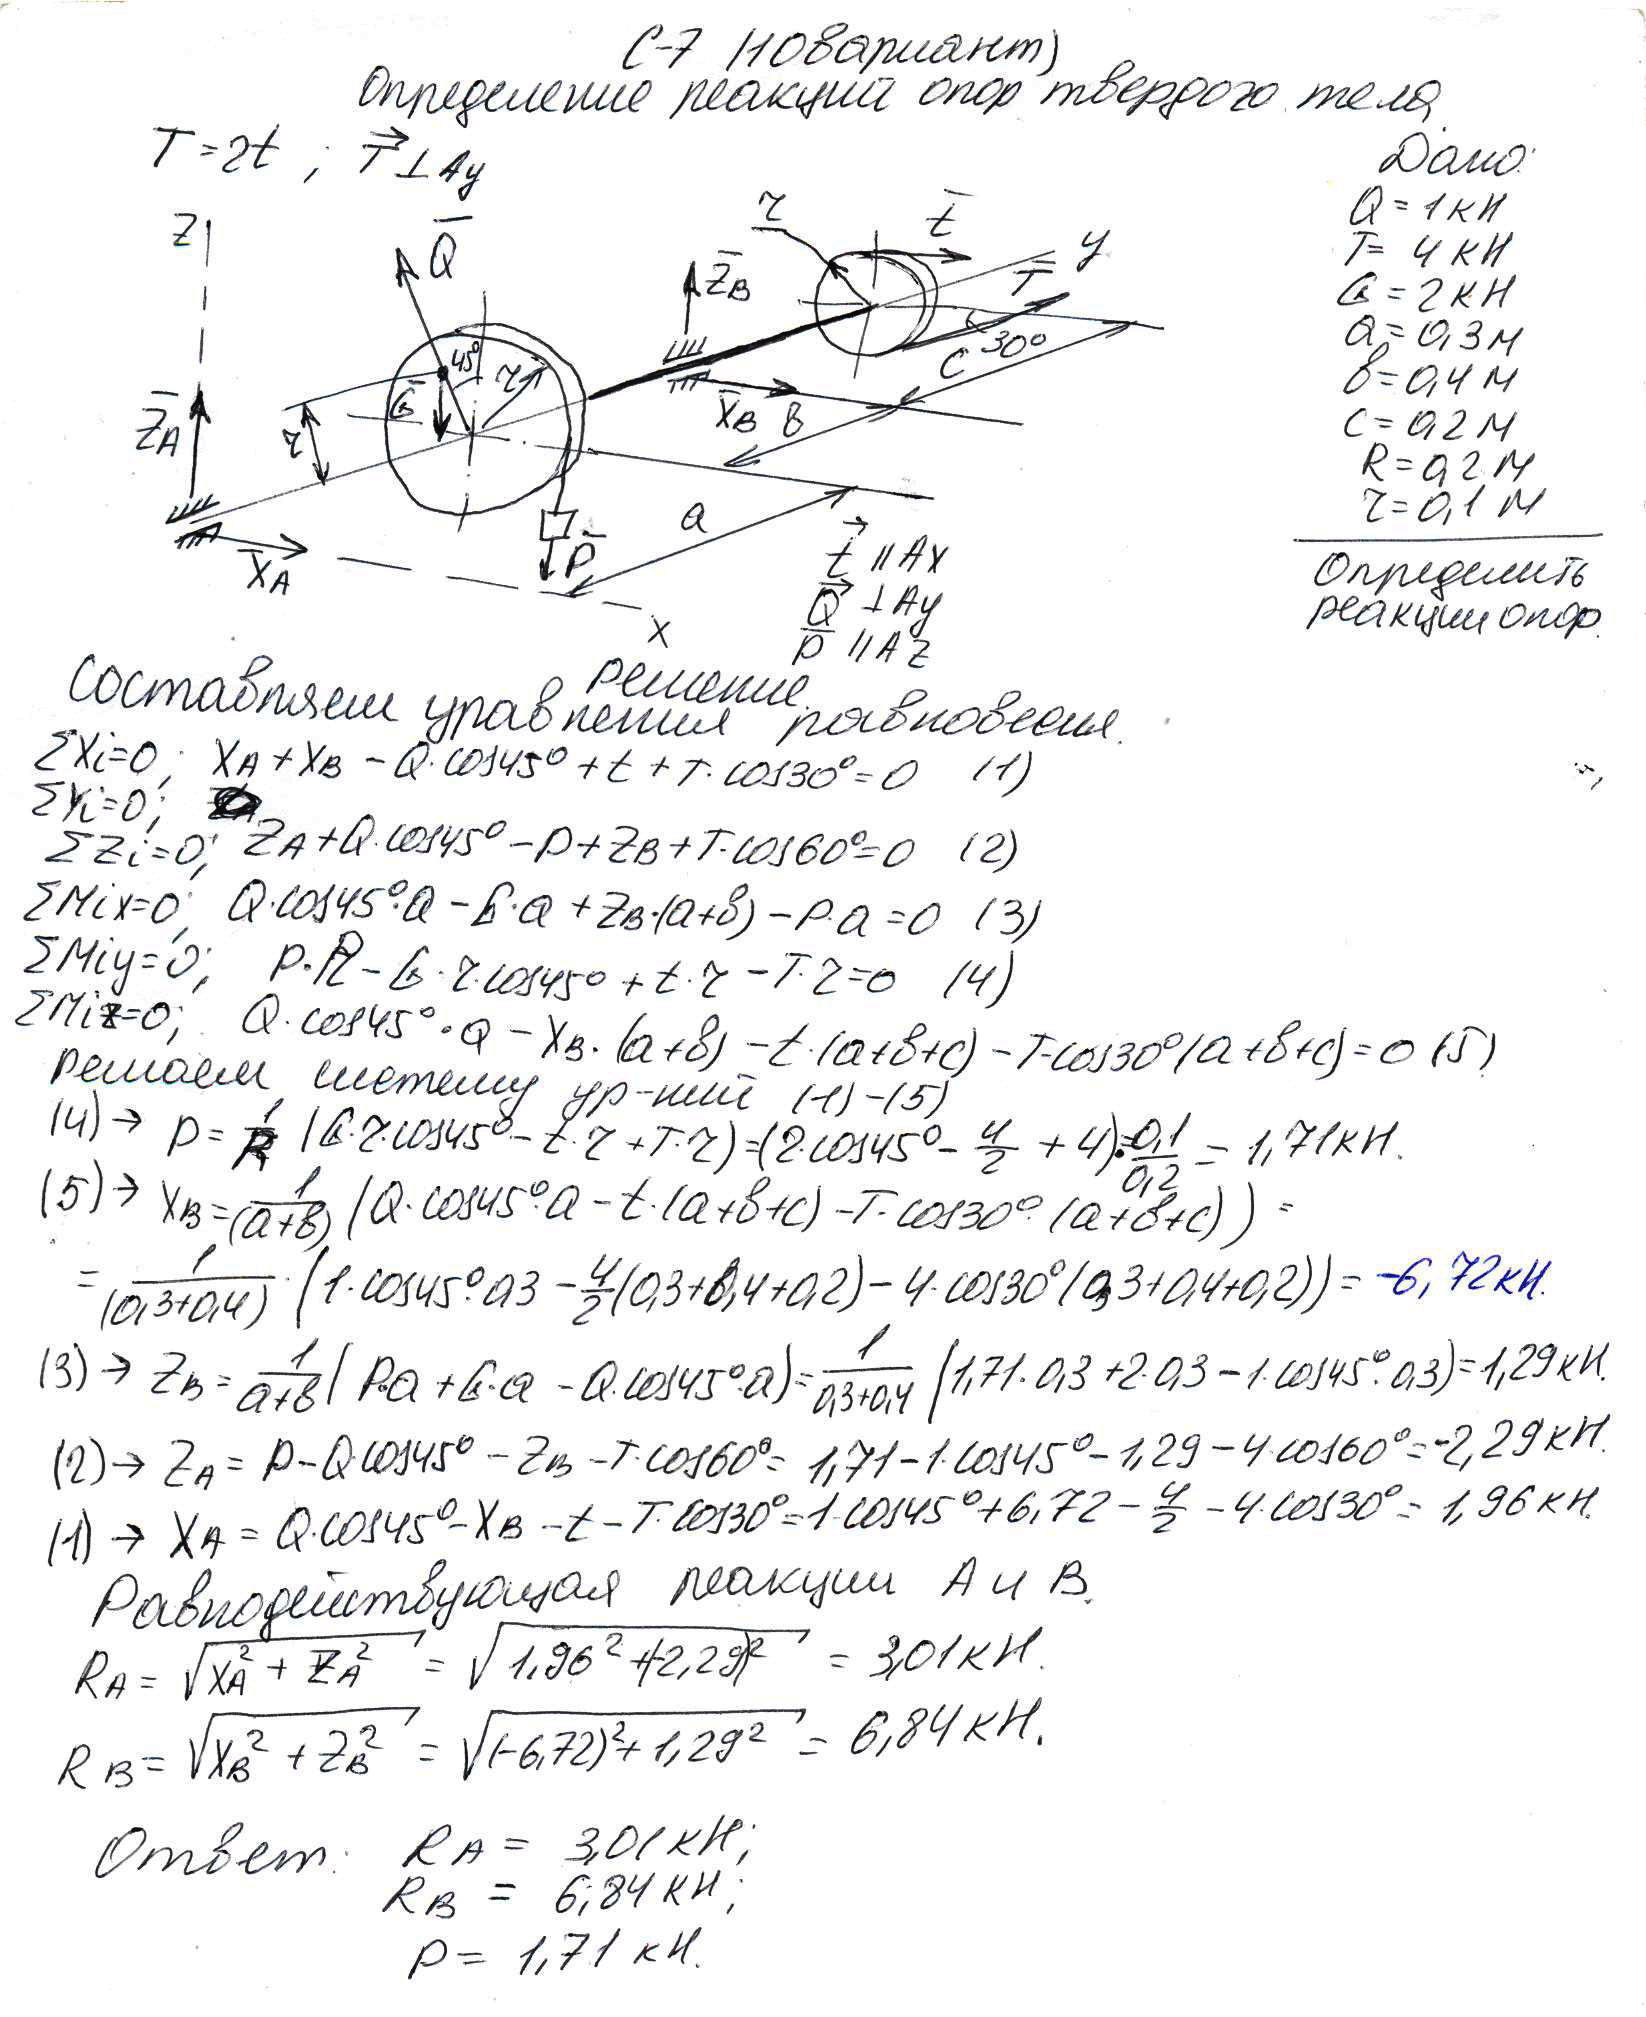 С-7 (10 вариант)
Определение реакций опор твердого тела
T = 2t ; T⃗ ⊥ Ay
Дано:
Q = 1 кН
T = 4 кН
G = 2 кН
a = 0,3 м
b = 0,4 м
c = 0,2 м
R = 0,2 м
r = 0,1 м
Определить
реакции опор.
Z
Q̄
r
t̄
Z̄B
y
T̄
45°
r
Ḡ
30°
c
Z̄A
r
X̄B
b
a
P̄
X̄A
x
t⃗ ∥ Ax
Q⃗ ⊥ Ay
P̄ ∥ Az
Решение.
Составляем уравнения равновесия.
ΣXi=0; XA + XB − Q·cos45° + t + T·cos30° = 0 (1)
ΣYi=0;
ΣZi=0; ZA + Q·cos45° − P + ZB + T·cos60° = 0 (2)
ΣMix=0; Q·cos45°·a − G·a + ZB·(a+b) − P·a = 0 (3)
ΣMiy=0; P·R − G·r·cos45° + t·r − T·r = 0 (4)
ΣMiz=0; Q·cos45°·a − XB·(a+b) − t·(a+b+c) − T·cos30°(a+b+c) = 0 (5)
Решаем систему ур-ний (1) − (5)
(4) → P = 1/R (G·r·cos45° − t·r + T·r) = (2·cos45° − 4/2 + 4)·0,1/0,2 = 1,71 кН.
(5) → XB = 1/(a+b) (Q·cos45°·a − t·(a+b+c) − T·cos30°·(a+b+c)) =
= 1/(0,3+0,4) · (1·cos45°·0,3 − 4/2(0,3+0,4+0,2) − 4·cos30°(0,3+0,4+0,2)) = −6,72 кН.
(3) → ZB = 1/a+b (P·a + G·a − Q·cos45°·a) = 1/0,3+0,4 (1,71·0,3 + 2·0,3 − 1·cos45°·0,3) = 1,29 кН.
(2) → ZA = P − Q·cos45° − ZB − T·cos60° = 1,71 − 1·cos45° − 1,29 − 4·cos60° = −2,29 кН.
(1) → XA = Q·cos45° − XB − t − T·cos30° = 1·cos45° + 6,72 − 4/2 − 4·cos30° = 1,96 кН.
Равнодействующая реакции A и B.
RA = √(XA² + ZA²) = √(1,96² + (−2,29)²) = 3,01 кН.
RB = √(XB² + ZB²) = √((−6,72)² + 1,29²) = 6,84 кН.
Ответ: RA = 3,01 кН;
RB = 6,84 кН;
P = 1,71 кН.